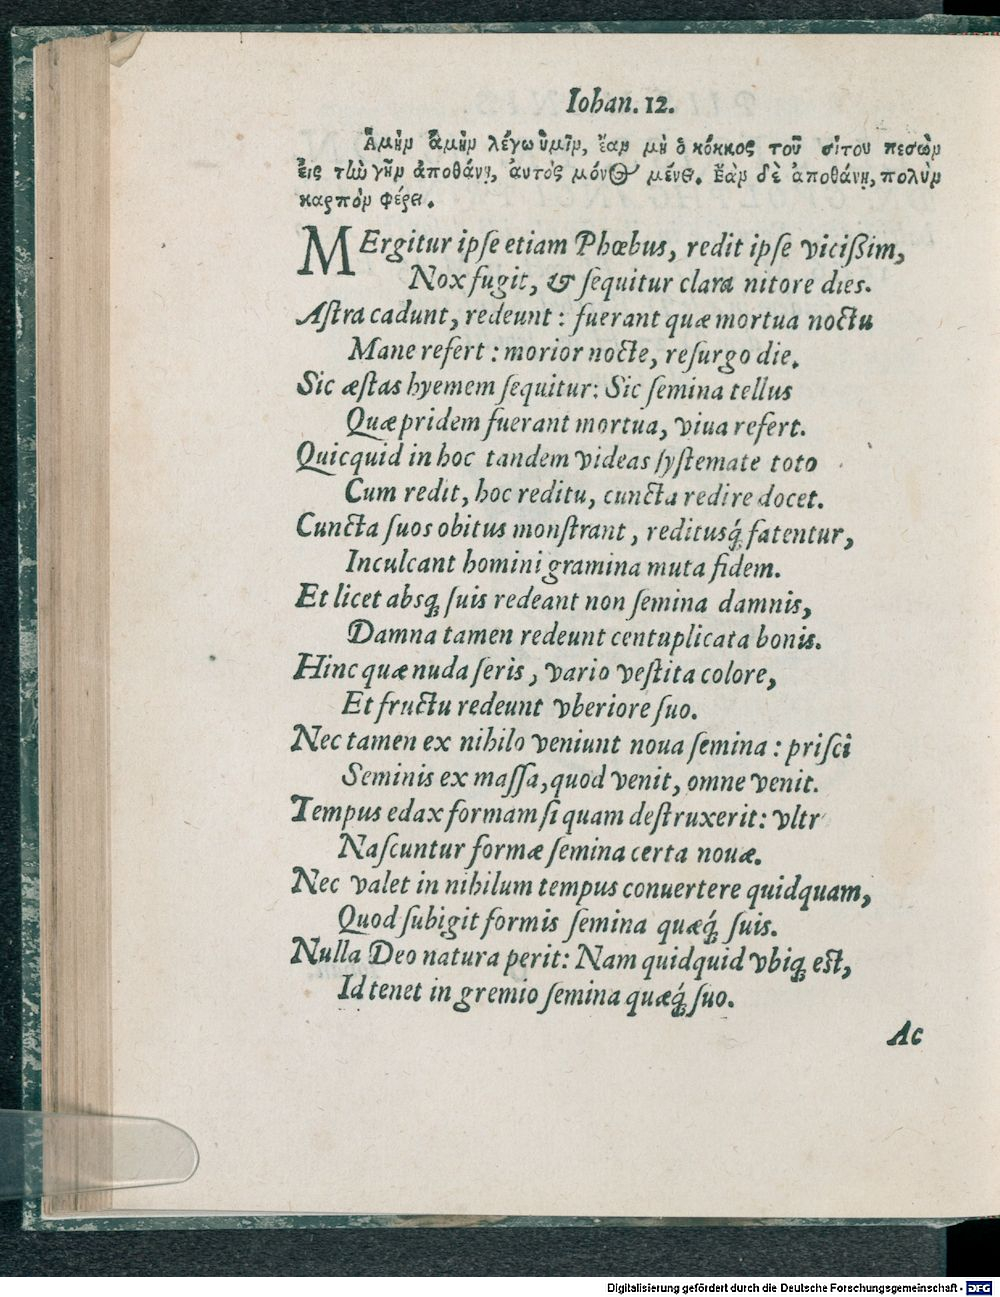 Iohan. 12.
Ἀμὴν ἀμὴν λέγω ὑμῖν, ἔαν μὴ ὁ κόκκος τοῦ σίτου πεσὼν
εἰς τὼ γῆν ἀποθάνῃ, ἀυτὸς μόνος μένει. Ἐὰν δὲ ἀποθάνῃ, πολὺν
καρπὸν φέρει.
MErgitur ipſe etiam Phœbus, redit ipſe viciſsim,
Nox fugit, & ſequitur clara nitore dies.
Aſtra cadunt, redeunt: fuerant quæ mortua noctu
Mane refert: morior nocte, reſurgo die.
Sic æſtas hyemem ſequitur: Sic ſemina tellus
Quæ pridem fuerant mortua, viua refert.
Quicquid in hoc tandem videas ſyſtemate toto
Cum redit, hoc reditu, cuncta redire docet.
Cuncta ſuos obitus monſtrant, reditusq́; fatentur,
Inculcant homini gramina muta fidem.
Et licet absq; ſuis redeant non ſemina damnis,
Damna tamen redeunt centuplicata bonis.
Hinc quæ nuda ſeris, vario veſtita colore,
Et fructu redeunt vberiore ſuo.
Nec tamen ex nihilo veniunt noua ſemina: priſci
Seminis ex maſſa, quod venit, omne venit.
Tempus edax formam ſi quam deſtruxerit: vltr
Naſcuntur formæ ſemina certa nouæ.
Nec valet in nihilum tempus conuertere quidquam,
Quod ſubigit formis ſemina quæq́; ſuis.
Nulla Deo natura perit: Nam quidquid vbiq; eſt,
Id tenet in gremio ſemina quæq́; ſuo.
Ac
Digitalisierung gefördert durch die Deutsche Forschungsgemeinschaft - DFG